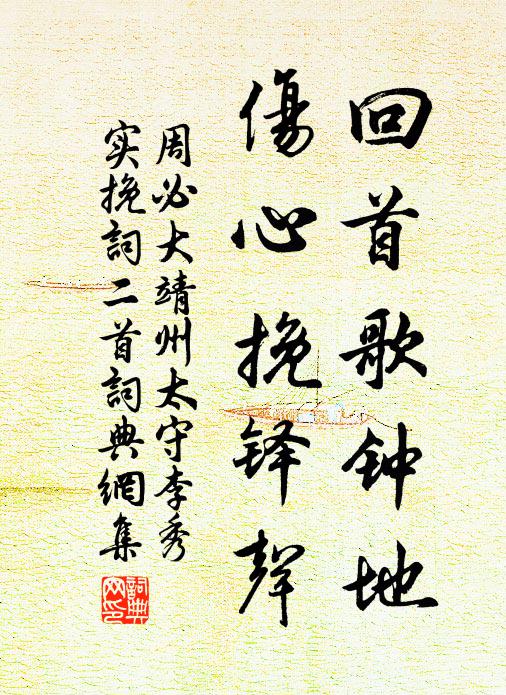 回首歌钟地
傷心挽铎聲
周必大靖州太守李秀
实挽詞二首詞典網集
詞典
网印